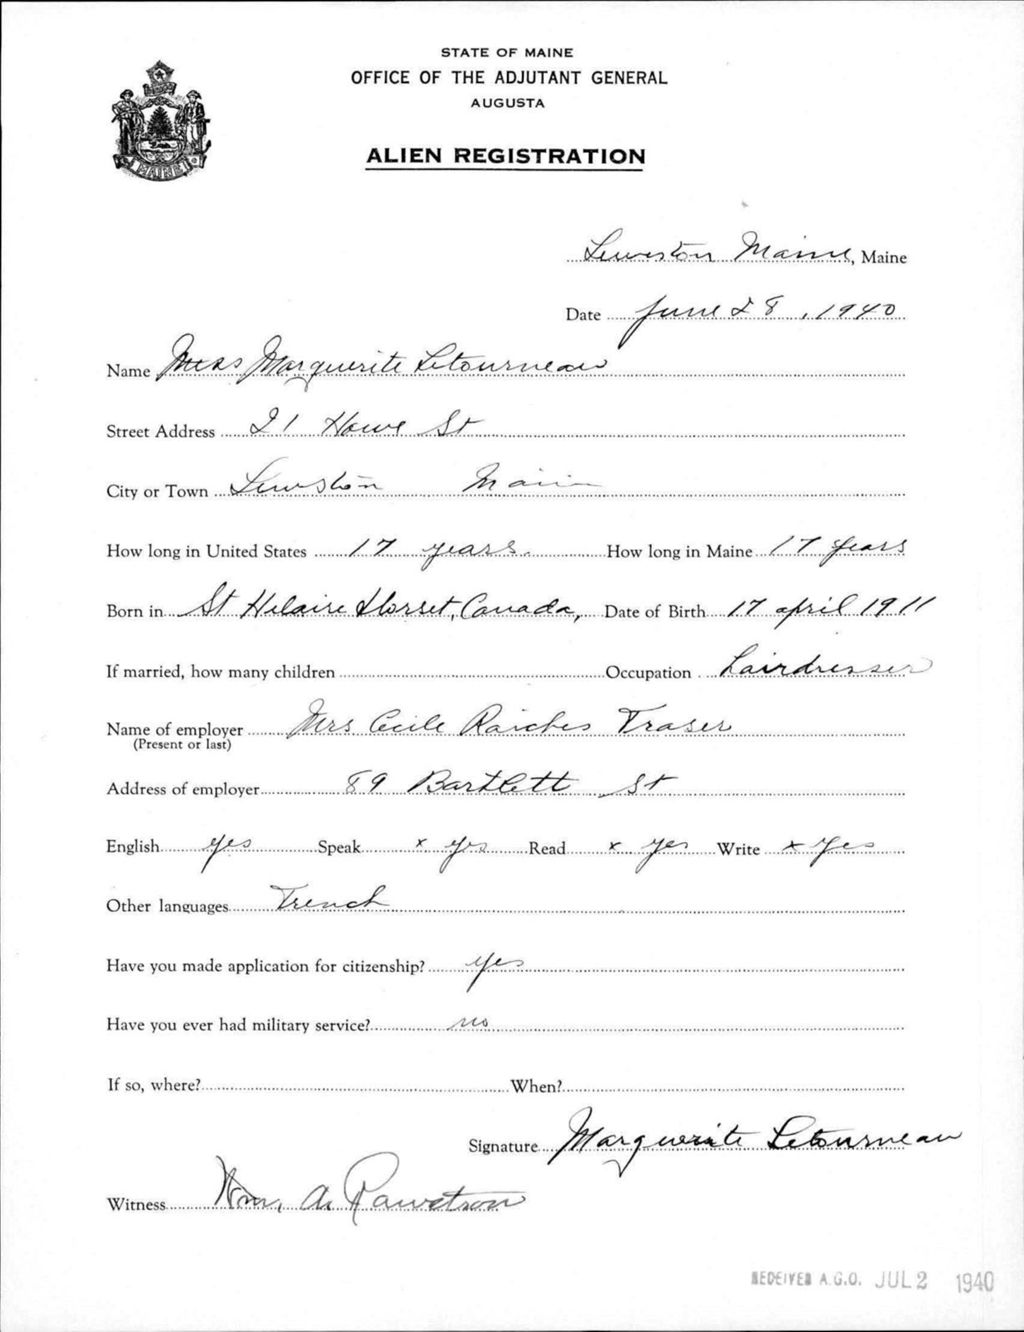 STATE OF MAINE
OFFICE OF THE ADJUTANT GENERAL
AUGUSTA
ALIEN REGISTRATION
MAINE
Lewiston Maine, Maine
Date June 28, 1940
Name Miss Marguerite Letourneau
Street Address 21 Howe St
City or Town Lewiston Maine
How long in United States 17 years. How long in Maine 17 years
Born in St Helaire Dorset, Canada, Date of Birth 17 april 1911
If married, how many children Occupation hairdresser
Name of employer Mrs Cecile Fraser
(Present or last)
Address of employer 89 Bartlett St
English yes Speak x yes Read x yes Write x yes
Other languages French
Have you made application for citizenship? yes
Have you ever had military service? no
If so, where? When?
Signature Marguerite Letourneau
Witness Wm. A. Rawstron
RECEIVED A.G.O. JUL 2 1940